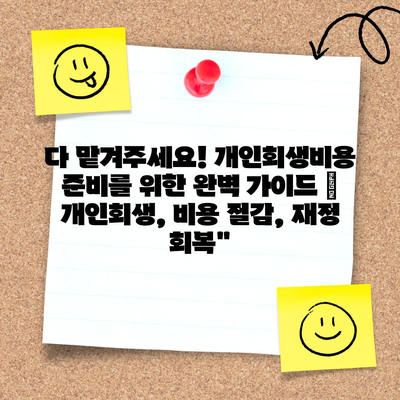 다 맡겨주세요! 개인회생비용
준비를 위한 완벽 가이드 NO GLYPH
개인회생, 비용 절감, 재정
회복"